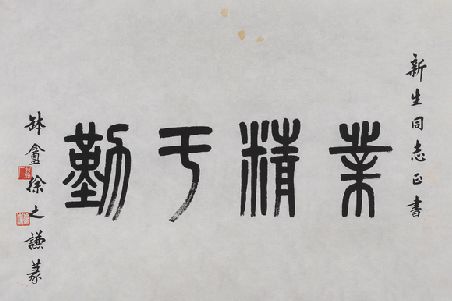 新生同志正書
業精于勤
缽盦徐之謙篆